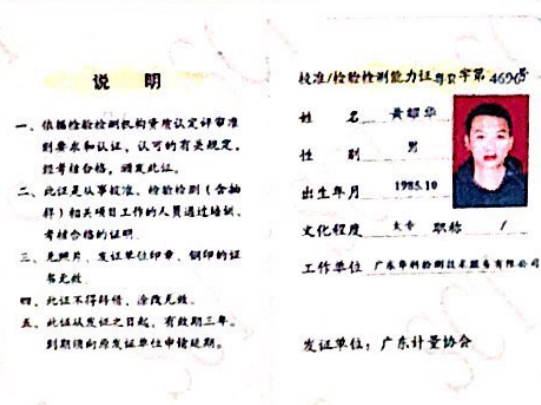 说 明
一、依据检验检测机构资质认定评审准
则要求和认证、认可的有关规定,
经考核合格,颁发此证。
二、此证是从事校准、检验检测(含抽
样)相关项目工作的人员通过培训、
考核合格的证明。
三、无照片、发证单位印章、钢印的证
书无效。
四、此证不得转借、涂改无效。
五、此证从发证之日起,有效期三年。
到期须向原发证单位申请延期。
校准/检验检测能力证粤R字第4696号
姓 名 黄耀华
性 别 男
出生年月 1985.10
文化程度 大专 职称 /
工作单位 广东华科检测技术服务有限公司
发证单位:广东计量协会